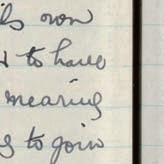 its own
to have
meaning
to join